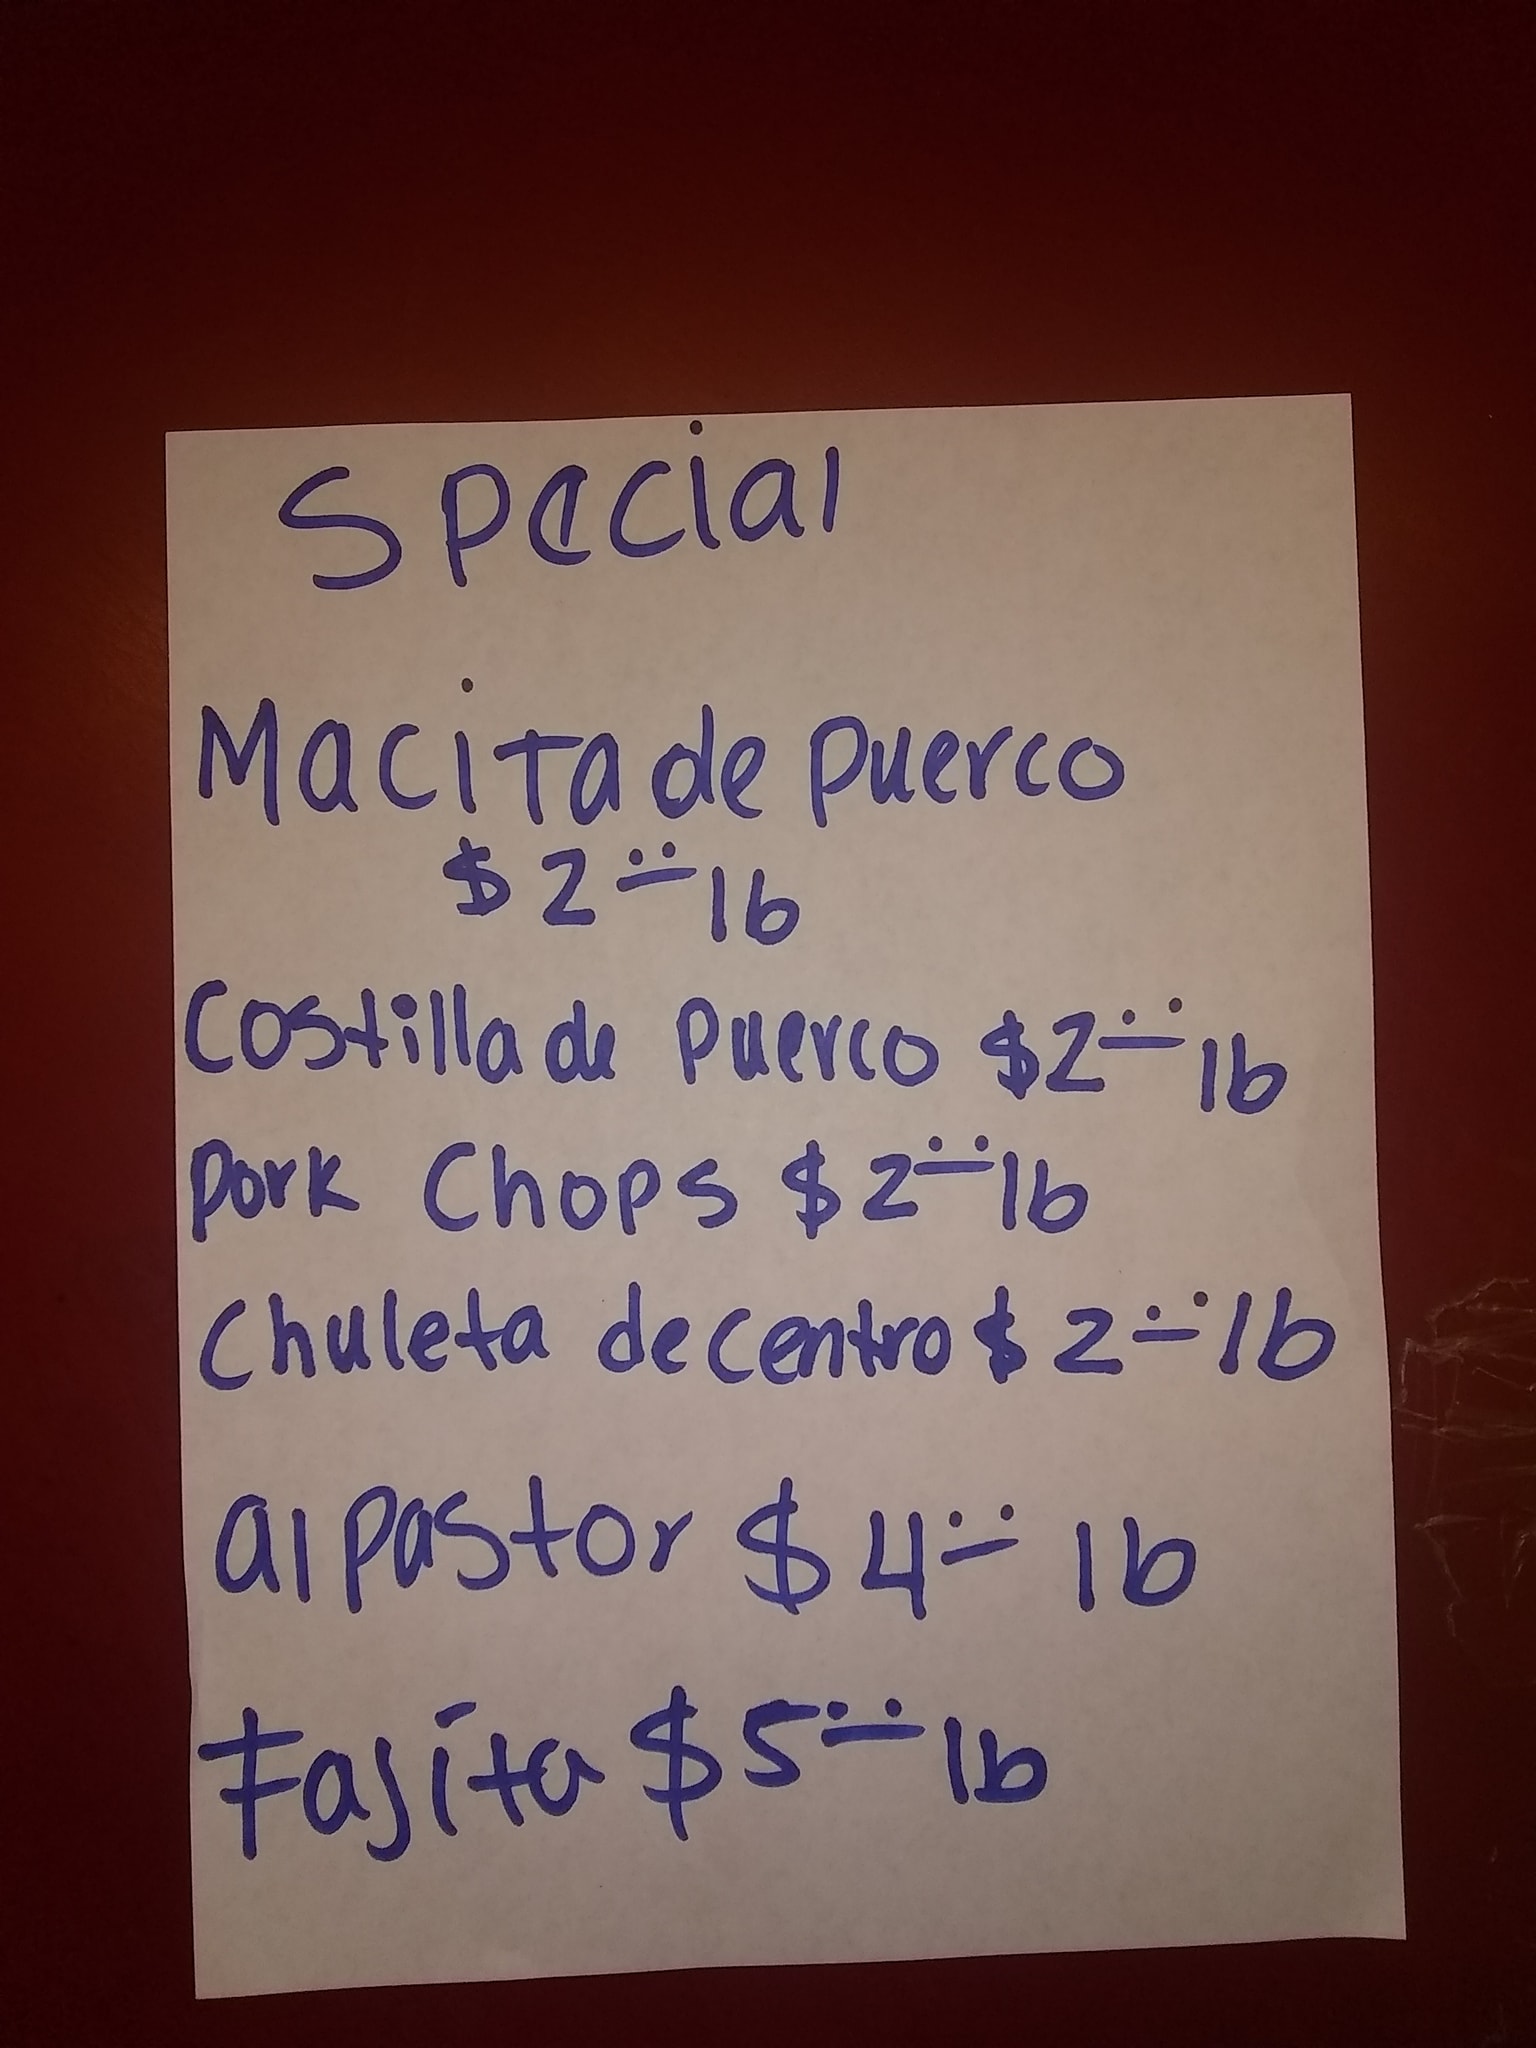 Special
Macita de puerco
$2 lb
Costilla de puerco $2 lb
Pork Chops $2 lb
Chuleta de centro $2 lb
al pastor $4 lb
Fajita $5 lb